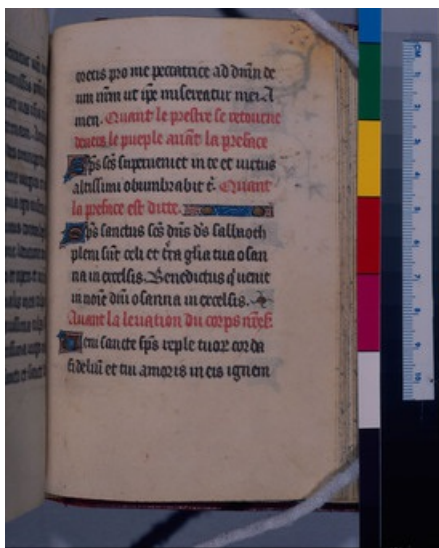 oretis pro me peccatrice ad dnm de
um nrm ut ipe misereatur mei A
men. Quant le prestre se retourne
devers le pueple avant la preface
Sps scs superveniet in te et virtus
altissimi obumbrabit t. Quant
la preface est ditte.
Sps sanctus scs dns ds sabbaoth
pleni sunt celi et tra glia tua osan
na in excelsis. Benedictus q venit
in noie dni osanna in excelsis.
Quant la levation du corps nre s.
Veni sancte sps reple tuor corda
fidelium et tui amoris in eis ignem